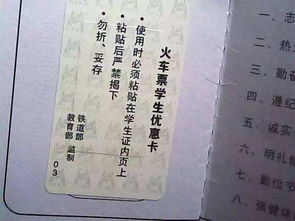 火车票学生优惠卡
• 使用时必须粘贴在学生证内页上
• 粘贴后严禁揭下
• 勿折、妥存
铁道部
教育部 监制
03
一、志
二、热
三、勤奋
四、遵纪
五、诚实
六、明礼
七、勤俭节
八、强健体